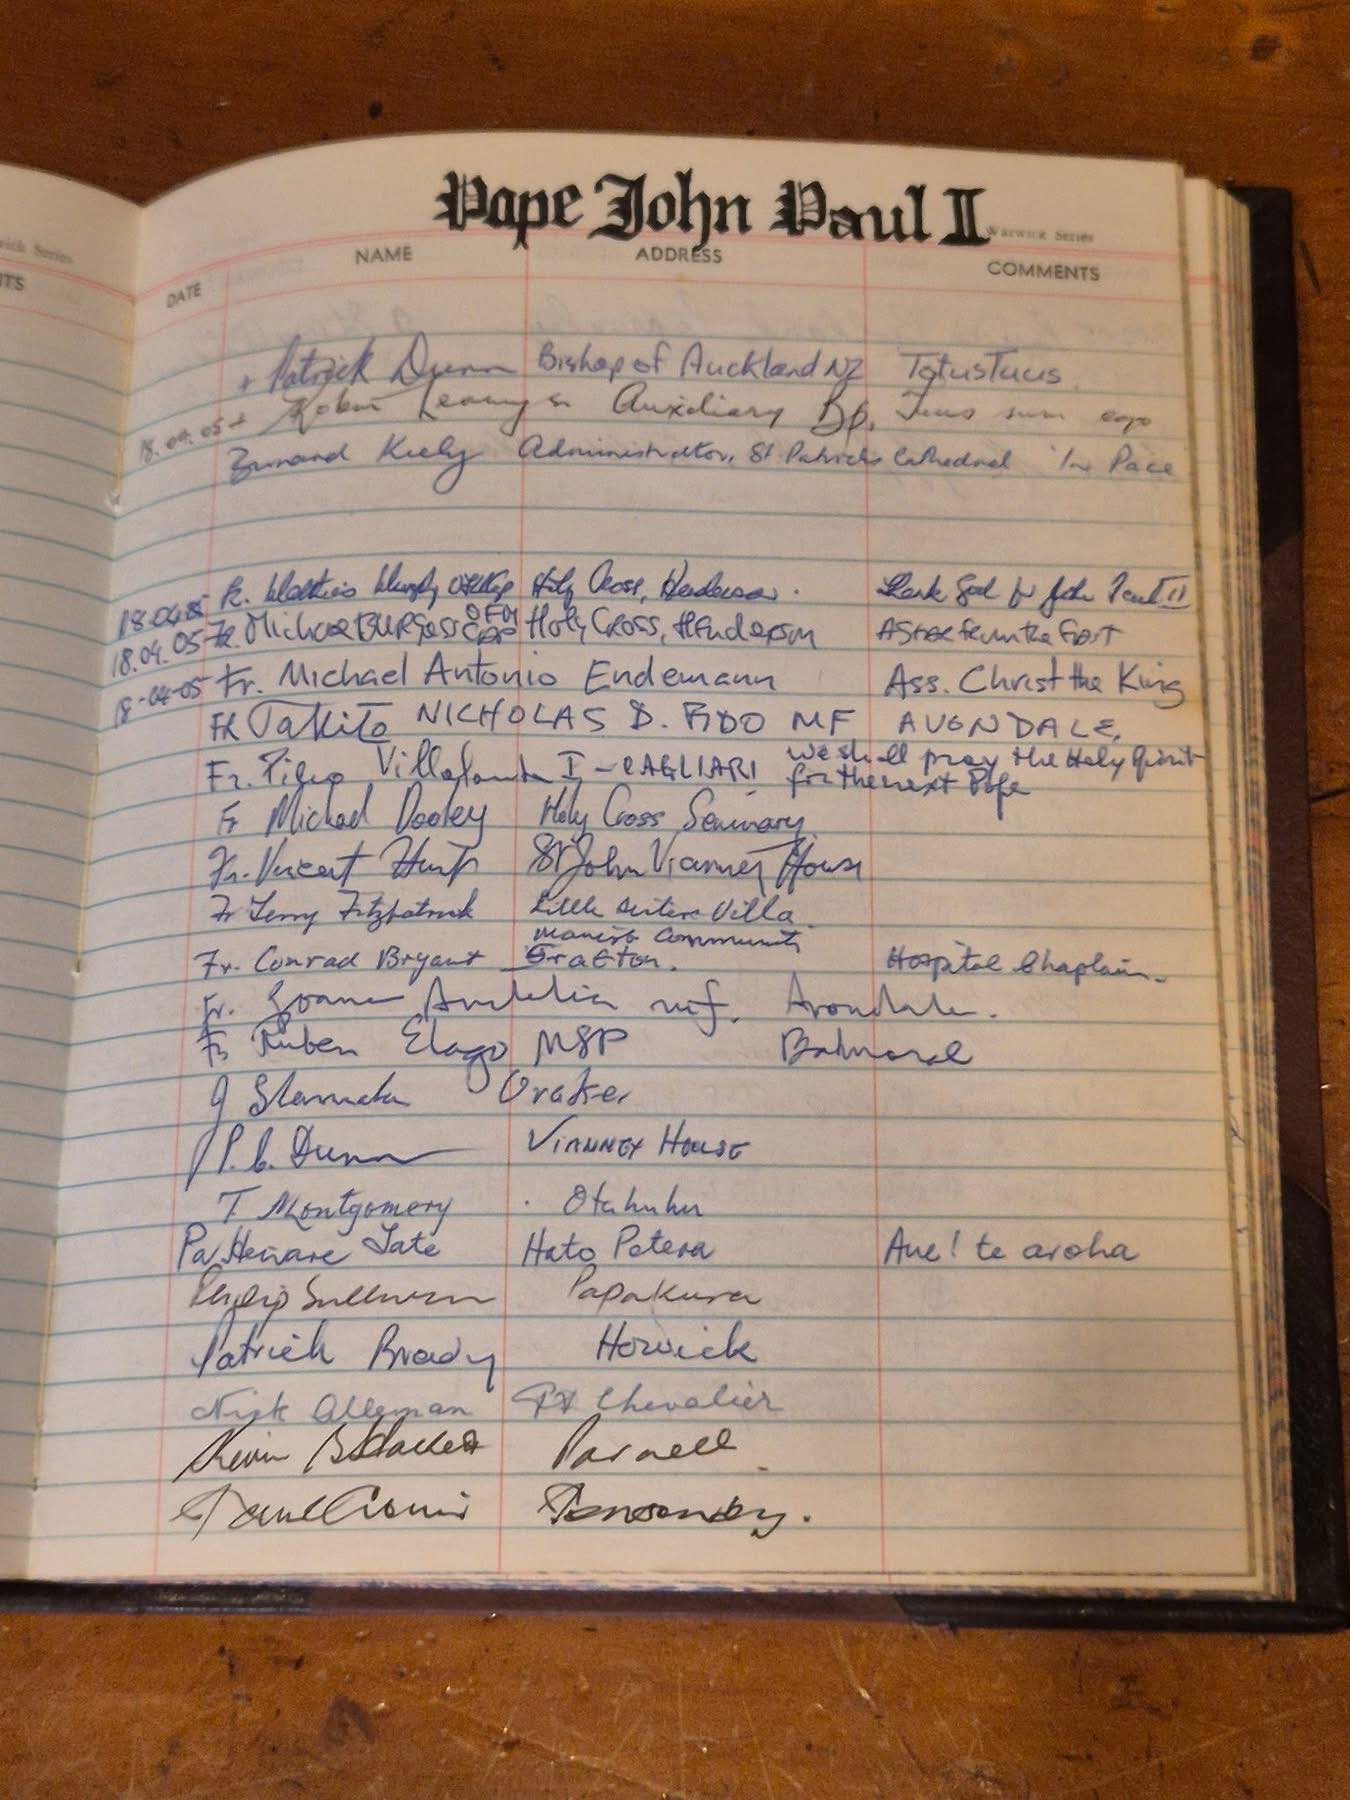 Pope John Paul II
Warwick Series
NAME ADDRESS
DATE COMMENTS
+ Patrick Dunn Bishop of Auckland NZ Totus Tuus
18.04.05 + Robin Leamy Auxiliary Bp. Tuus sum ego
Bernard Kiely Administrator, St Patricks Cathedral In Pace
18.04.05 Fr. Murphy Holy Cross, Henderson. Thank God for John Paul II
18.04.05 Fr. Michael BURgess OFM CAP Holy Cross, Henderson A Star from the East
18-04-05 Fr. Michael Antonio Endemann Ass. Christ the King
FR Takito NICHOLAS D. FIDO MF AVONDALE.
We shall pray the Holy Spirit
Fr. I - CAGLIARI for the next Pope
Fr Michael Dooley Holy Cross Seminary
Fr. Vincent Hunt St John Vianney House
Fr Terry Fitzpatrick Little Sisters Villa
Marist Community
Fr. Conrad Bryant Grafton. Hospital Chaplain.
Fr. mf. Avondale.
Fr Ruben Elago MSP Balmoral
J Orakei
P. C. Dunn VIANNEY HOUSE
T Montgomery Otahuhu
Pa Henare Tate Hato Petera Aue! te aroha
Philip Sullivan Papakura
Patrick Brady Howick
Nick Alleman Pt Chevalier
Kevin Parnell.
Ponsonby.